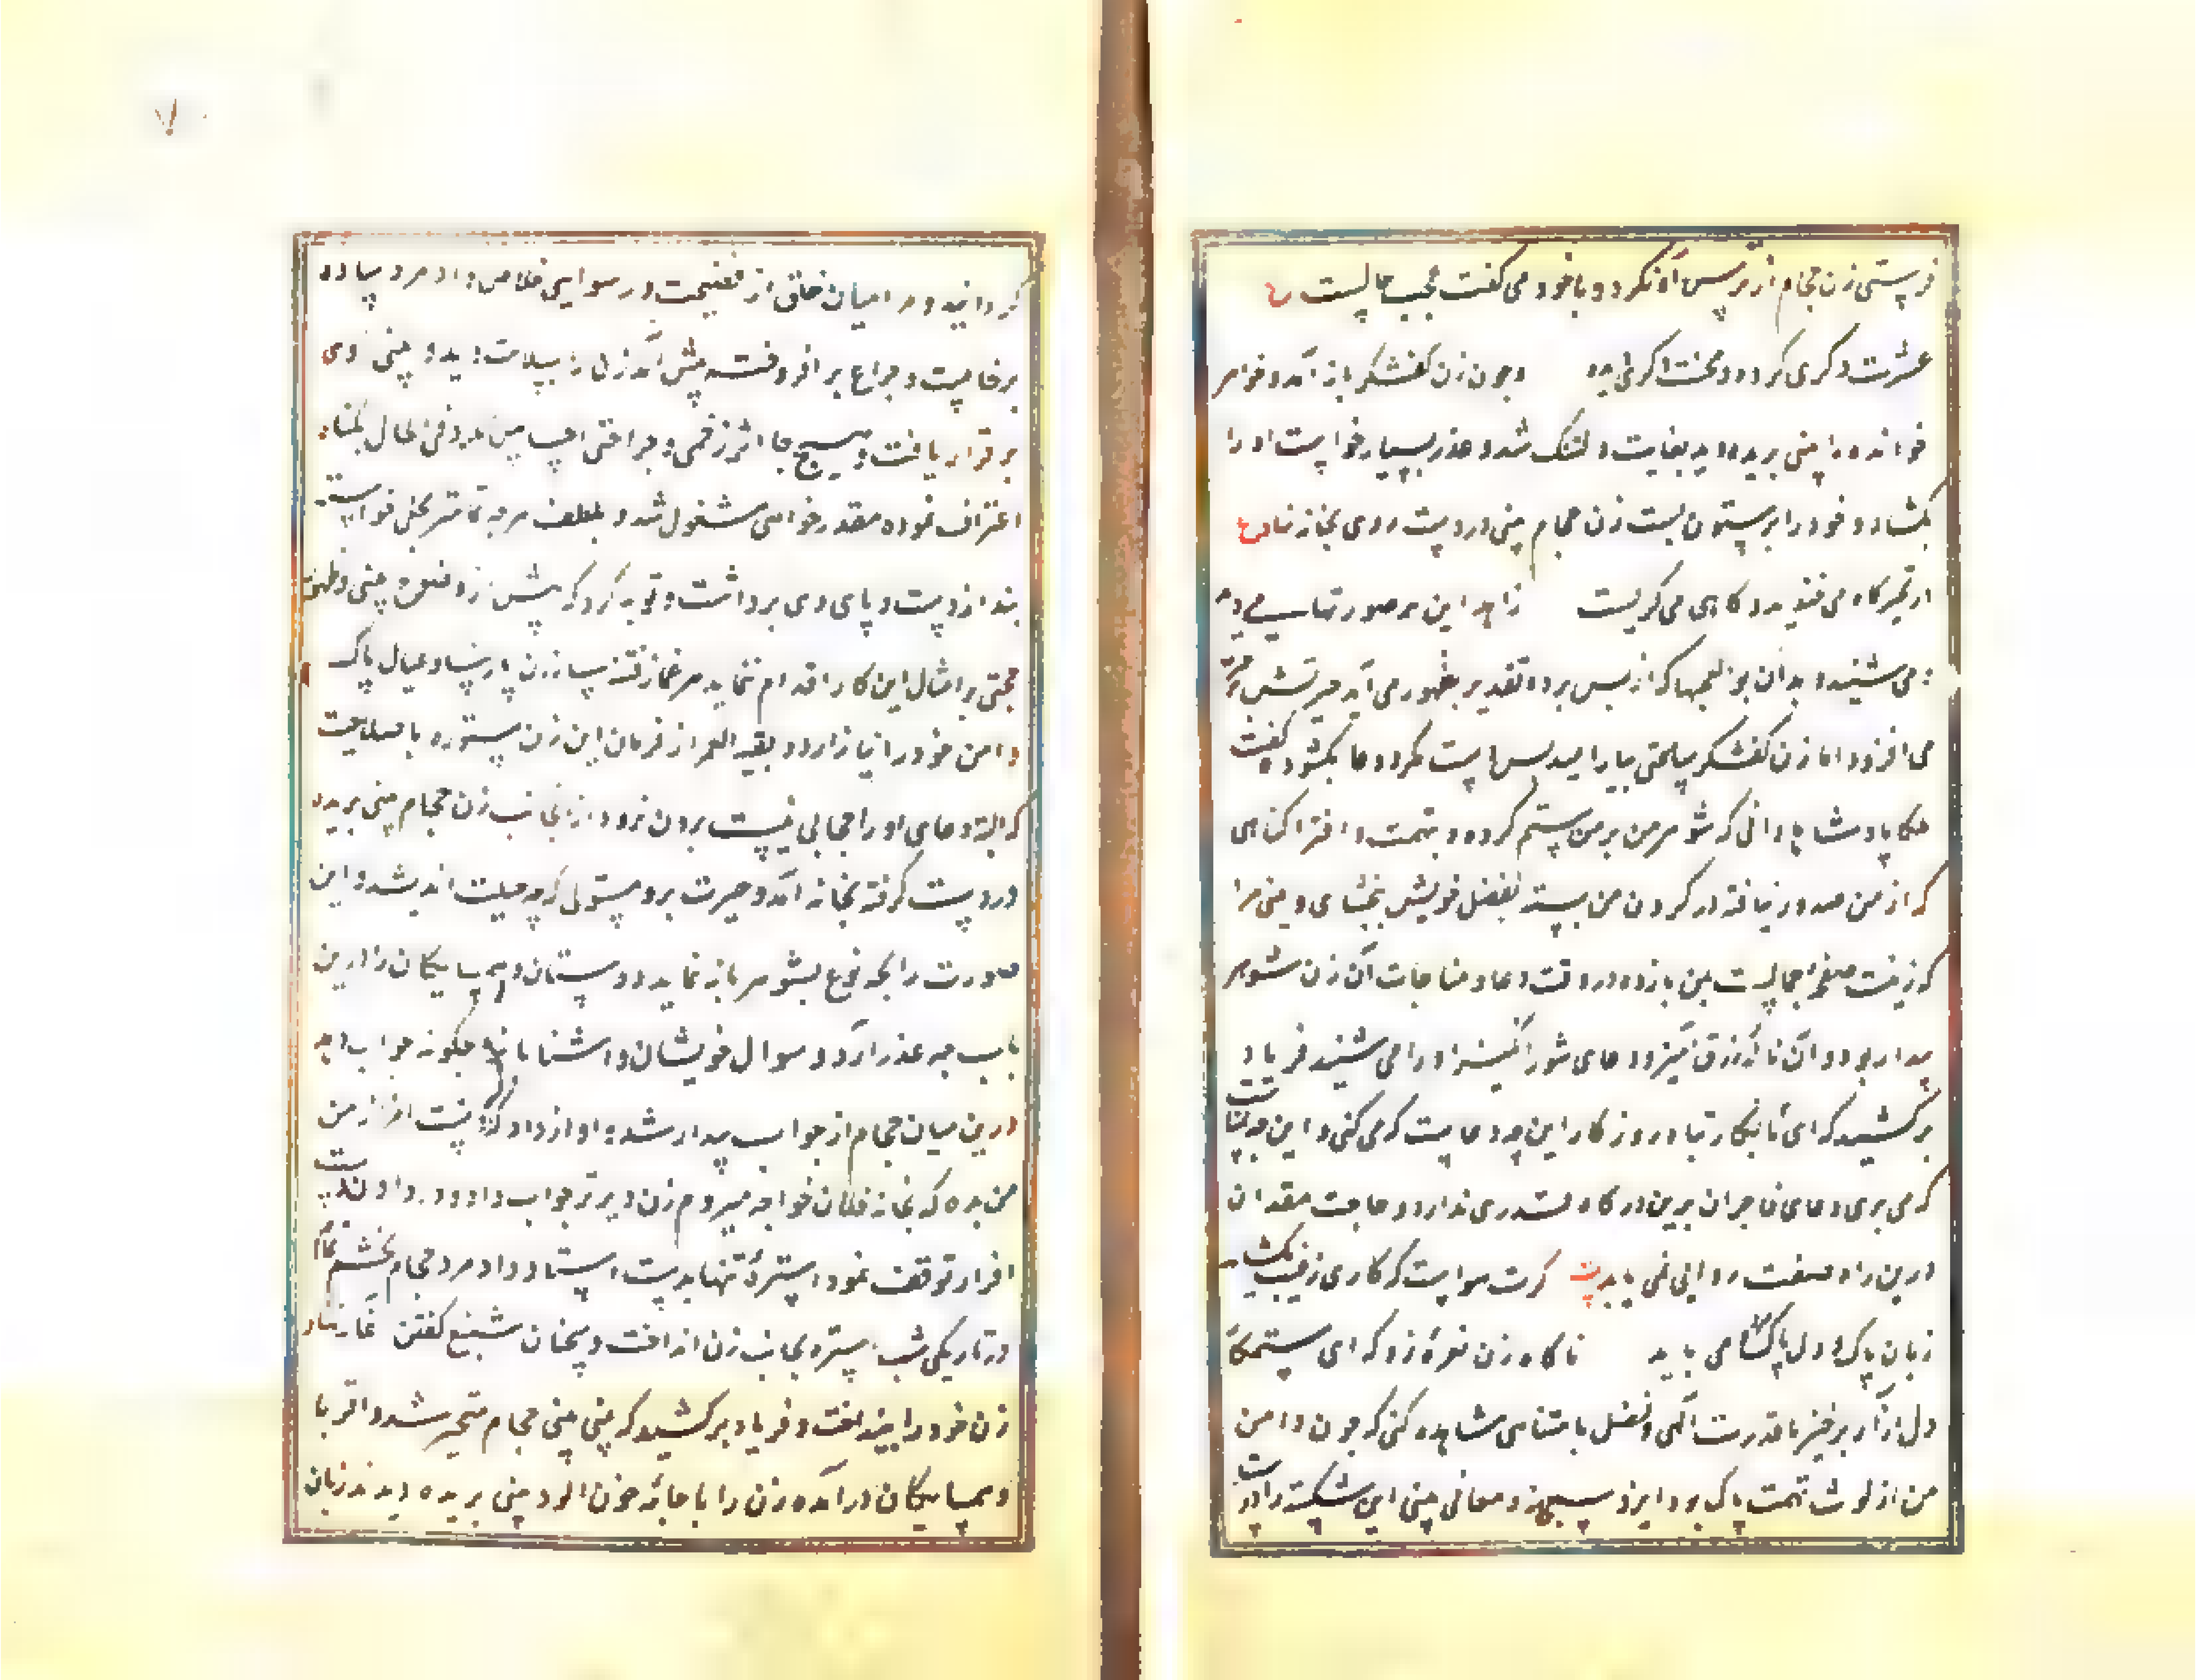 فرستی زن حجام از ترس آه نکرد و با خود می گفت عجب حالیست ع
عشرت دگری کرده و محنت دگری دید و چون زن کفشگر باز آمد و خواهر
خوانده را بینی بریده دید بغایت دلتنگ شد و عذر بسیار خواست او را
بکشاد و خود را بر ستون بست زن حجام بینی در دست روی بخانه نهاد ع
از تحیر گاه می خندید و گاهی می گریست زاهد این همه صورتها می دید
و می شنید و بدان بوالعجبیها که از پس پرده تقدیر بظهور می آمد حیرتش
می افزود اما زن کفشگر ساعتی بیارامید پس دست مکر و دعا بگشود و گفت
ملکا پادشاها دانی که شوهر من بر من ستم کرده و بتهمت و افترا گناهی
که از من صدور نیافته در گردن من بسته بفضل خویش ببخشای و بینی مرا
که زینت صفحه جمالست بمن باز ده در وقت دعا و مناجات آن زن شوهر
بیدار بود و آن ناله زرق آمیز و دعای شورانگیز او را می شنید فریاد
برکشید که ای نابکار تباه روزگار این چه دعایست که می کنی و این چه تمناست
که می بری دعای فاجران برین درگاه قدری ندارد و حاجت مفسدان
درین راه صفت روائی نمی یابد بیت گرت هواست که کاری ز غیب بگشاید
زبان پاک و دل پاک می باید ناگاه زن نعره زد که ای ستمکار
دل آزار برخیز تا قدرت الهی و فضل نامتناهی مشاهده کنی که چون دامن
من از لوث تهمت پاک بود ایزد سبحانه و تعالی بینی این شکسته را درست
گردانید و مرا میان خلق از فضیحت و رسوایی خلاص داد مرد ساده
برخاست و چراغ برافروخت پیش آمد زن را بسلامت دید و بینی وی
برقرار یافت و هیچ جا اثر زخمی و جراحتی احساس نکرد فی الحال بگناه
اعتراف نموده بعذرخواهی مشغول شد و بلطف هر چه تمامتر بحلی خواست
بند از دست و پای وی برداشت و توبه کرد که پیش از وضوح بینتی و ظهور
حجتی بر امثال این کار اقدام ننماید و بسخن هر غماز فتنه ساز زن پارسا و عیال پاک
دامن خود را نیازارد و بقیه العمر از فرمان این زن مستوره با صلاحیت
که البته دعای او را حجابی نیست بیرون نرود از آن جانب زن حجام بینی بریده
در دست گرفته بخانه آمد و حیرت برو مستولی که چه حیلت اندیشد و این
صورت را بچه نوع بشوهر باز نماید و دوستان و همسایگان را درین
باب چه عذر آرد و سوال خویشان و آشنایان را چگونه جواب دهد
درین میان حجام از خواب بیدار شده آواز داد که دست افزار من
بمن بده که بخانه فلان خواجه میروم زن دیرتر جواب داد و در دادن دست
افزار توقف نمود استره تنها بدست استاد داد مرد حجام بخشم تمام
در تاریکی شب استره بجانب زن انداخت و سخنان شنیع گفتن آغاز نهاد
زن خود را بیفکند و فریاد برکشید که بینی بینی حجام متحیر شد و اقربا
و همسایگان درآمده زن را با جامه خون آلود بینی بریده دیدند زبان